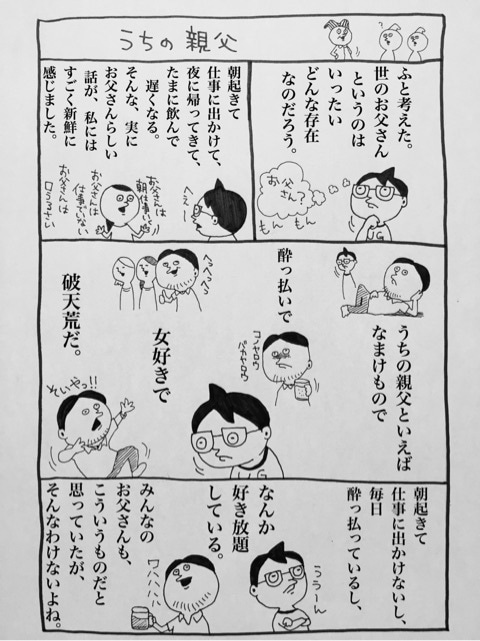 うちの親父
ふと考えた。
世のお父さん
というのは
いったい
どんな存在
なのだろう。
お父さん?
もんもん
朝起きて
仕事に出かけて、
夜に帰ってきて、
たまに飲んで
遅くなる。
そんな、実に
お父さんらしい
話が、私には
すごく新鮮に
感じました。
へぇー
お父さんは
朝仕事いって
お父さんは
仕事でいない
お父さんは
口うるさい
うちの親父といえば
なまけもので
酔っ払いで
コノヤロウ
バカヤロウ
へっへっへっ
女好きで
破天荒だ。
そいやっ!!
朝起きて
仕事に出かけないし、
毎日
酔っ払っているし、
なんか
好き放題
している。
うぅーん
みんなの
お父さんも、
こういうものだと
思っていたが、
そんなわけないよね。
ワハハハハ